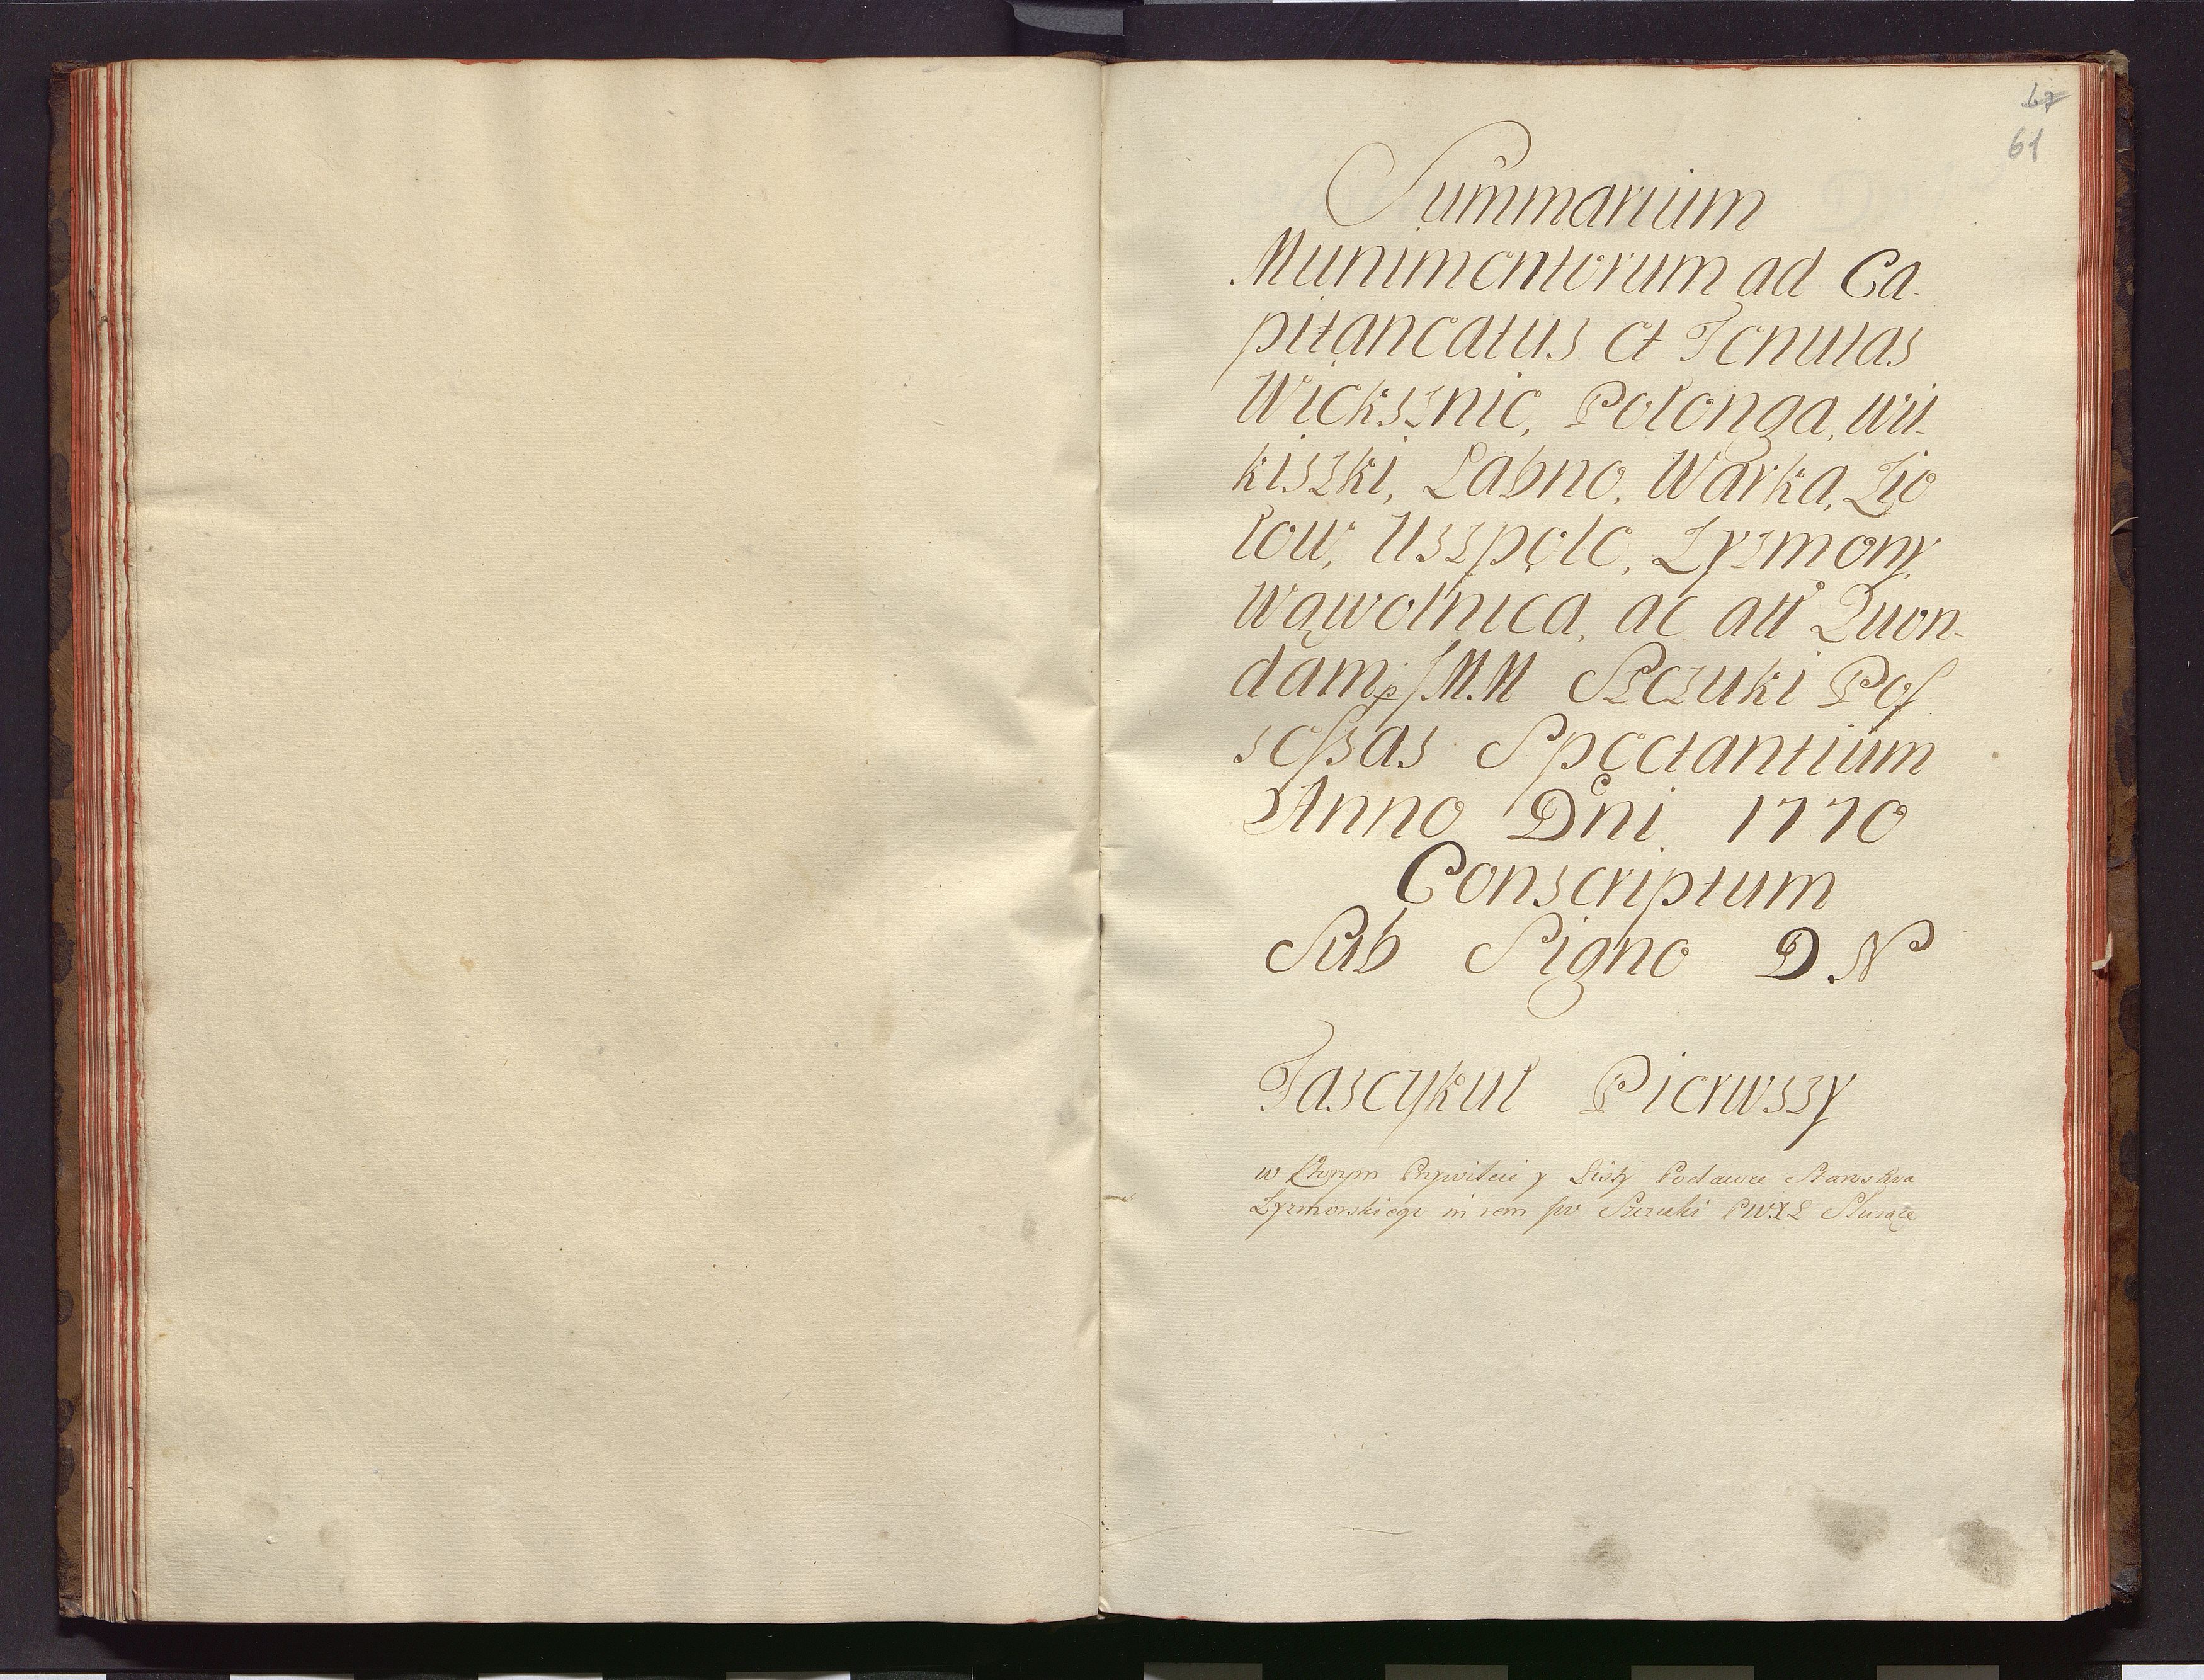 67
61
Summarium
Munimentorum ad Ca-
pitaneatus et Tenutas
Wieksznie, Polonga, Wil-
kiszki, Łabno, Warka, Zio
łow, Uszpole, Zyzmory,
Wąwolnica, ac all Quon-
dam p J.M.M Szczuki Pos
sessas Spectantium
Anno Dni 1770
Conscriptum
Sub Signo D.N
Fascykuł Pierwszy
w Ktorym Przywileie y Listy Podawcze Starostwa
Zyzmorskiego in rem Szczuki PWXL Słuzące